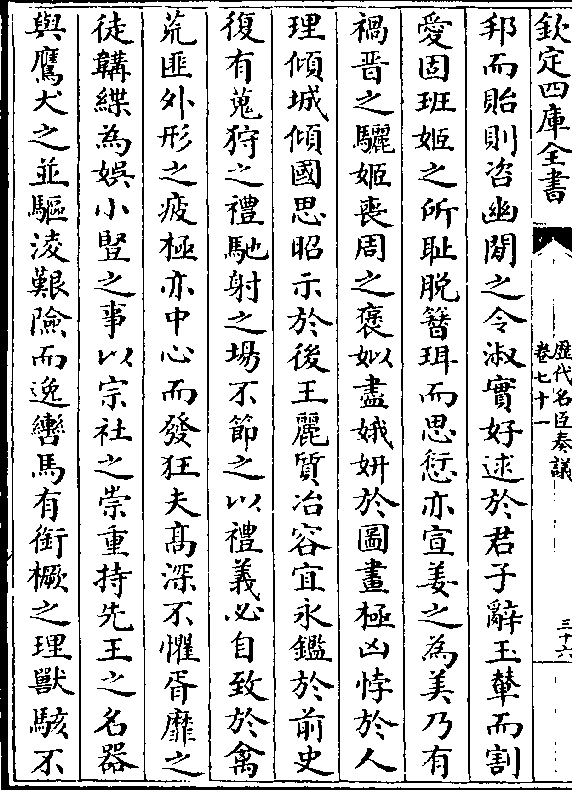 欽定四庫全書
歴代名臣奏議
卷七十一
三十六
邦而貽則咨幽閒之令淑實好逑於君子辭玉輦而割
愛固班姬之所耻脱簪珥而思愆亦宣姜之為美乃有
禍晋之驪姬喪周之褒姒盡娥妍於圖畫極凶悖於人
理傾城傾國思昭示於後王麗質冶容宜永鑑於前史
復有蒐狩之禮馳射之場不節之以禮義必自致於禽
荒匪外形之疲極亦中心而發狂夫髙深不懼胥靡之
徒韝緤為娯小豎之事以宗社之崇重持先王之名器
與鷹犬之並驅淩艱險而逸轡馬有銜橛之理獸駭不